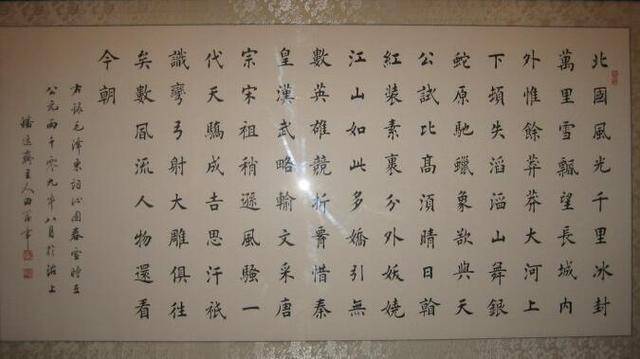 北國風光千里冰封
萬里雪飄望長城内
外惟餘莽莽大河上
下頓失滔滔山舞銀
蛇原馳蠟象欲與天
公試比高須晴日看
紅裝素裹分外妖嬈
江山如此多嬌引無
數英雄競折腰惜秦
皇漢武略輸文采唐
宗宋祖稍遜風騷一
代天驕成吉思汗祇
識彎弓射大雕俱往
矣數風流人物還看
今朝
右錄毛澤東詞沁園春雪時在
公元兩千零九年八月於滬上
齋主人田